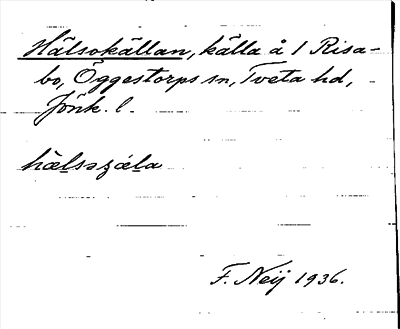 Hälsokällan, källa å 1 Risa-
bo, Öggestorps sn, Tveta hd,
Jönk. l.
hælsəȥæla
F. Neij 1936.